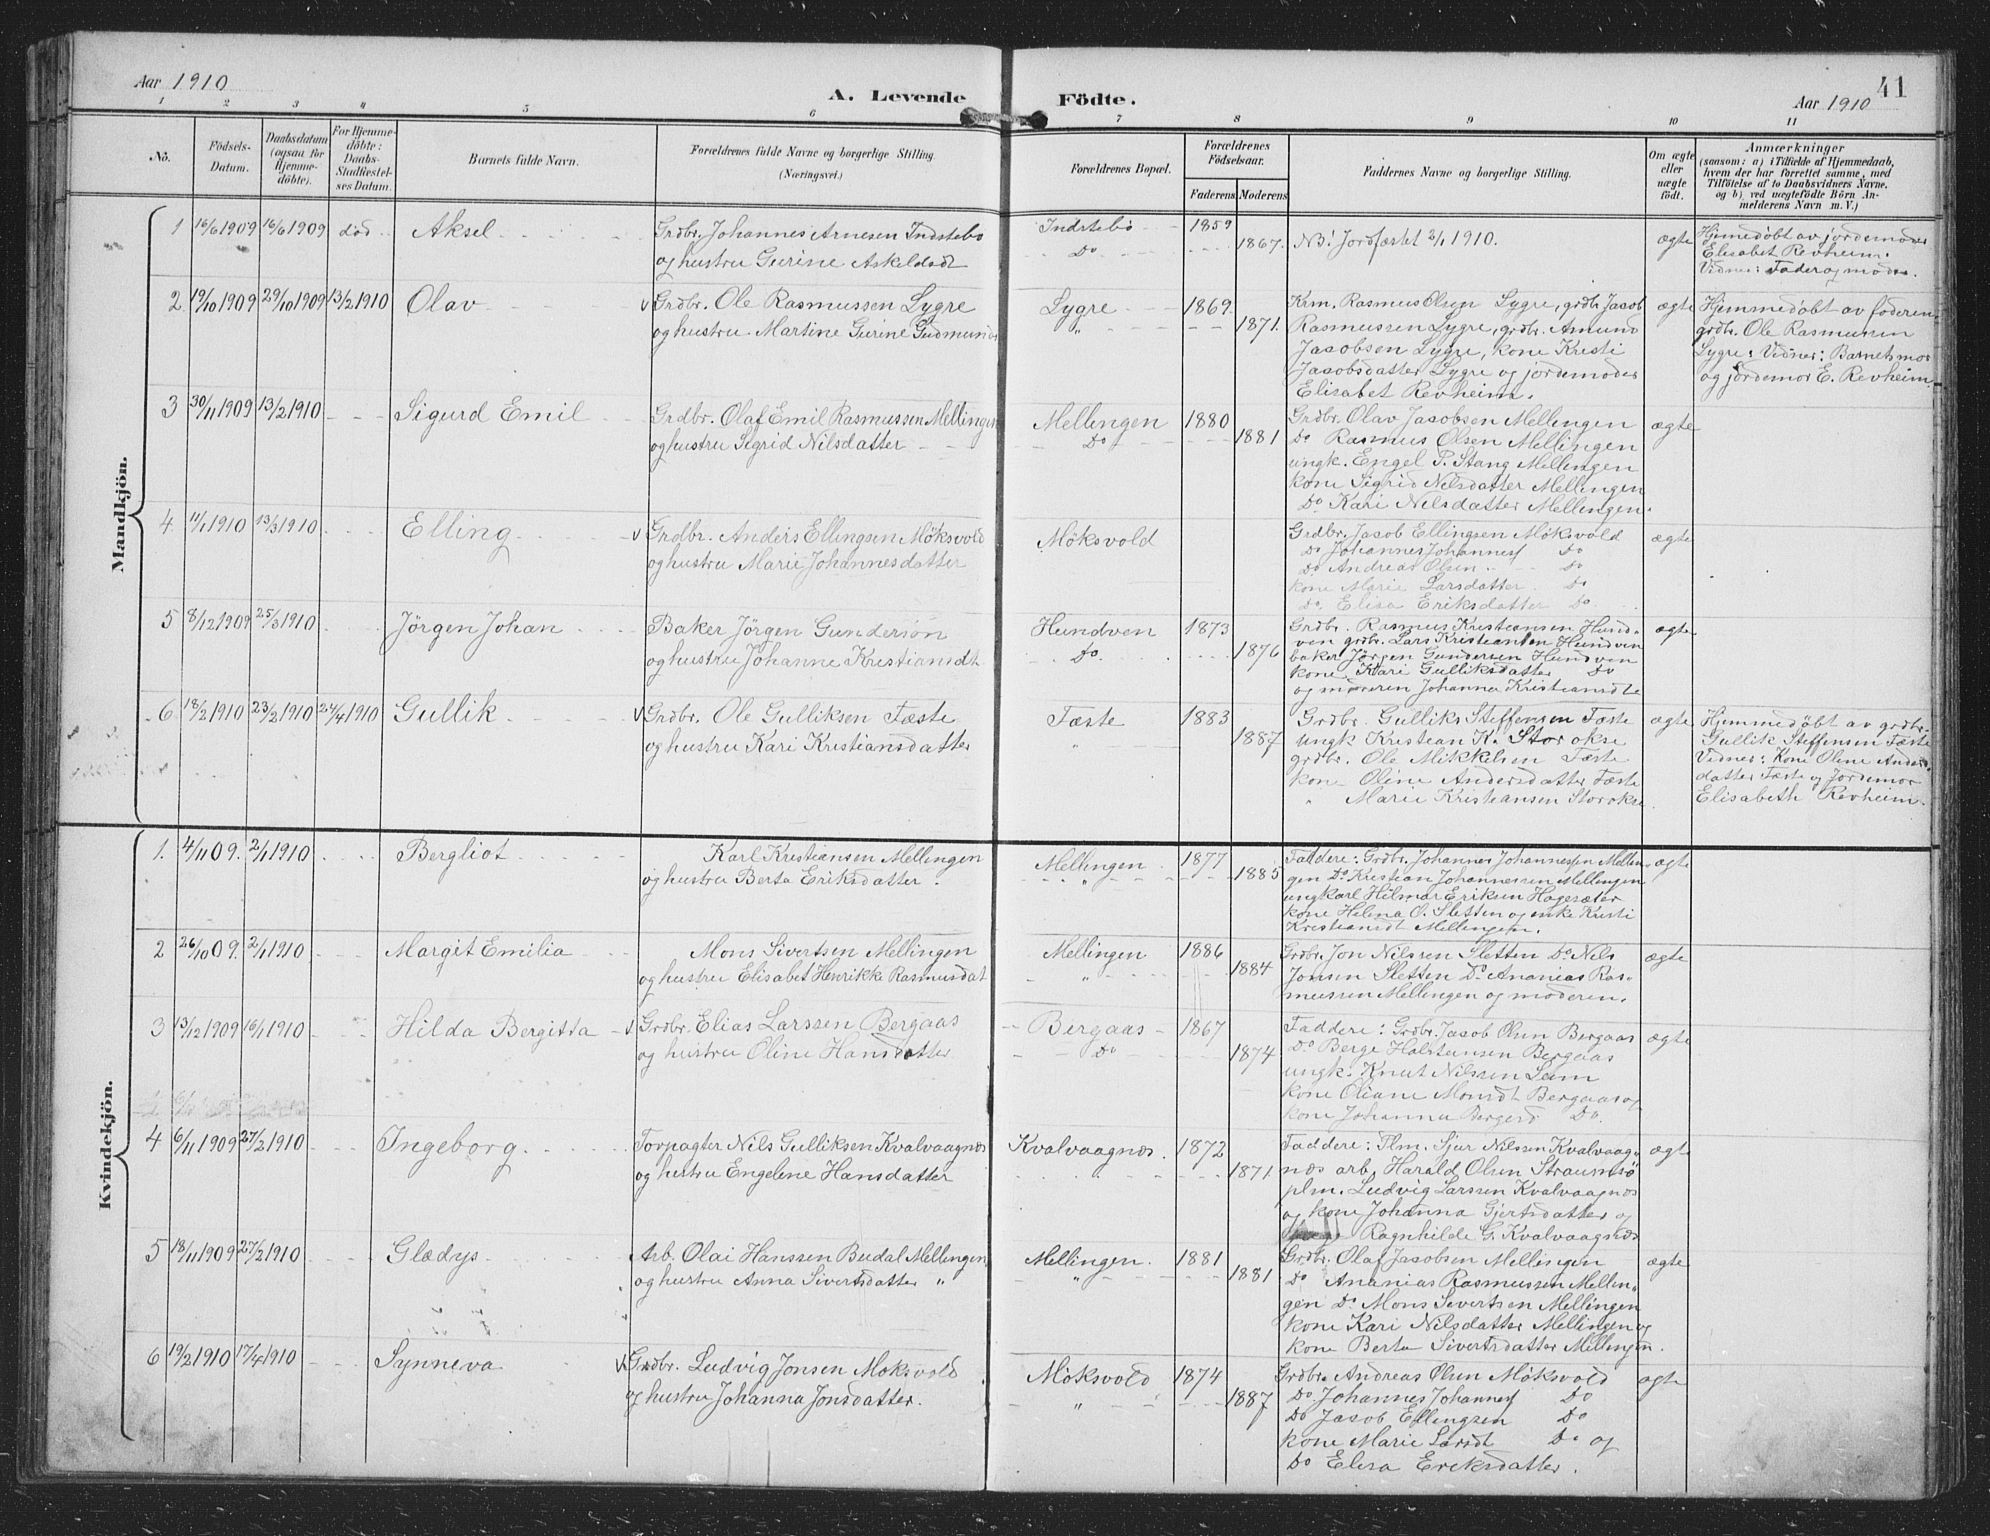 Aar 1910
A. Levende Födte.
41
Aar 1910
1 2 3 4 5 6 7 8 9 10 11
No.
Födsels-
Datum.
Daabsdatum
(ogsaa for
Hjemme-
döbte).
For Hjemme-
döbte:
Daabs-
Stadfæstel-
ses Datum.
Barnets fulde Navn.
Forældrenes fulde Navne og borgerlige Stilling.
(Næringsvei.)
Forældrenes Bopæl.
Forældrenes
Födselsaar.
Faderens Moderens
Faddernes Navne og borgerlige Stilling.
Om ægte
eller
uægte
født.
Anmærkninger
(saasom: a) i Tilfælde af Hjemmedaab,
hvem der har forrettet samme, med
Tilföielse af to Daabsvidners Navne.
og b) ved uægtefödte Börn An-
melderens Navn m. V.)
Mandkjön.
1 16/6 1909 16/6 1909 død Aksel
Grdbr. Johannes Arnesen Indstebø
og hustru Gurine Askeldsdt
Indstebø 1859
Do 1867.
NB! Jordfæstet 2/1 1910.
ægte
Hjemedøbt av jordemoder
Elisabet Revheim.
Vidner: Fader og moder.
2 19/10 1909 29/10 1909 13/2 1910 Olav
v Grdbr. Ole Rasmussen Lygre
og hustru Martine Gurine Gudmunds
Lygre 1869.
" 1871.
Krm. Rasmus Olsen Lygre, grdb. Jacob
Rasmussen Lygre, grdbr. Amund
Jacobsen Lygre, kone Kristi
Jacobsdatter Lygre og jordemoder
Elisabet Revheim.
ægte
Hjemmedøbt av faderen
grdbr. Ole Rasmussen
Lygre: Vidner: Barnets mor
og jordemor E. Revheim.
3 30/11 1909 13/2 1910 Sigurd Emil
Grdbr. Olaf Emil Rasmussen Mellingen
og hustru Sigrid Nilsdatter
Mellingen 1880
Do 1881
Grdbr. Olav Jacobsen Mellingen
Do Rasmus Olsen Mellingen
ungk. Engel P. Stang Mellingen
kone Sigrid Nilsdatter Mellingen
Do Kari Nilsdatter Mellingen.
ægte
4 11/1 1910 13/3 1910 Elling
v Grdbr. Anders Ellingsen Møksvold
og hustru Marie Johannesdatter
Møksvold
Grdbr. Jacob Ellingsen Møksvold
Do Johannes Johannes Do
Do Andreas Olsen Do
kone Marie Larsdatter Do
Do. Elisa Eriksdatter Do
ægte
5 8/12 1909 25/3 1910 Jörgen Johan
Baker Jörgen Gunderson
og hustru Johanne Kristiansdt
Hundven 1873
Do. 1876
Grdbr. Rasmus Kristiansen Hund-
ven grdbr. Lars Kristiansen Hundven
baker Jørgen Gundersen Hundven
kone Kari Gulliksdatter Do
og moderen Johanna Kristiansdt
ægte
6 18/2 1910 23/2 1910 24/4 1910 Gullik
v Grdbr. Ole Gulliksen Tæste
og hustru Kari Kristiansdatter
Tæste 1883
" 1887
Grdbr. Gullik Steffensen Tæste
ungk Kristian K. Storokse
grdbr. Ole Mikkelsen Tæste
kone Oline Andersdatter Tæste
" Marie Kristiansen Storokse
ægte
Hjemmedøbt av grdbr.
Gullik Steffensen Tæste
Vidner: Kone Oline Anders-
datter Tæste og Jordemor
Elisabeth Revheim.
Kvindekjön.
1. 4/11 09. 2/1 1910 Bergliot
Karl Kristiansen Mellingen
og hustru Berta Eriksdatter.
Mellingen 1877
" 1885
Faddere: Grdbr. Johannes Johannessen Mellin-
gen Do Kristian Johannessen Mellingen
ung Karl Hilmar Eriksen Hageseter
kone Helena O. Sletten og enke Kristi
Kristiansdt Mellingen.
ægte
2 26/10 09. 2/1 1910 Margit Emilia
Mons Sivertsen Mellingen
og hustru Elisabet Henrikke Rasmusdat
Mellingen 1886
" 1884
Grdbr. Jon Nilssen Sletten Do Nils
Jonsen Sletten Do Ananias Ras-
mussen Mellingen og moderen.
ægte
3 13/12 1909 16/1 1910 Hilda Bergitta
v Grdbr. Elias Larssen Bergaas
og hustru Oline Hansdatter
Bergaas 1867
Do 1874
Faddere: Grdbr. Jacob Olsen Bergaas
Do Berge Holstensen Bergaas
ungk. Knut Nilssen Leim
kone Oliane Monsdt Bergaas og
kone Johanna Bergesd Do.
ægte
4 6/11 1909 27/2 1910 Ingeborg
Torpagter Nils Gulliksen Kvalvaagnes
og hustru Engeline Hansdatter
Kvalvaagnes. 1872
1871
Faddere: Tlm. Sjur Nilssen Kvalvaag-
nes arb. Harald Olsen Straumsö
plm. Ludvig Larssen Kvalvaagnes
og kone Johanna Gjertsdatter og
Ragnhilde G. Kvalvaagnes
ægte
5 18/11 1909 27/2 1910 Glædys
Arb. Olai Hanssen Budal Mellingen
og hustru Anna Sivertsdatter "
Mellingen. 1881
" 1881
Grdbr. Olaf Jacobsen Mellingen
Do Ananias Rasmussen Mellin-
gen Do Mons Sivertsen Mellingen
kone Kari Nilsdatter Mellingen og
kone Berta Sivertsdatter Mellingen.
ægte
6 19/2 1910 17/4 1910 Synneva
v Grdbr. Ludvig Jonsen Møksvold
og hustru Johanna Jonsdatter.
Møksvold 1874
" 1887
Grdbr. Andreas Olsen Møksvold
Do Johannes Johannes Do
Do Jacob Ellingsen Do
kone Marie Larsdt Do og
Do Elisa Eriksdatter.
ægte